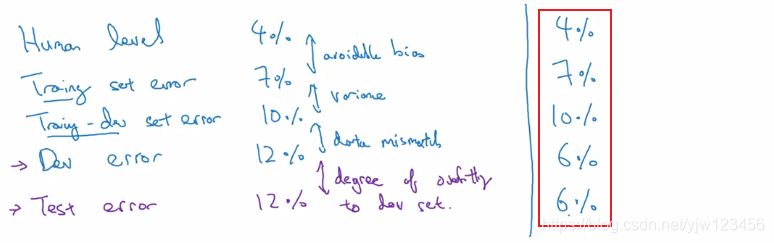 Human level 4% 4%
avoidable bias
Training set error 7% 7%
variance
Training-dev set error 10% 10%
data mismatch
→ Dev error 12% 6%
degree of overfitting
→ Test error 12% to dev set. 6%
https://blog.csdn.net/yjw123456